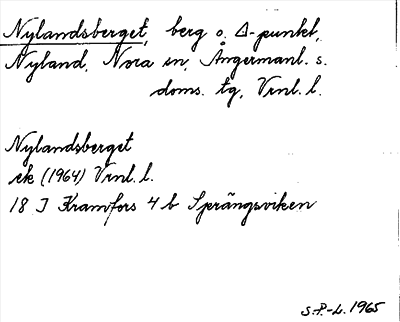 Nylandsberget, berg o. Δ-punkt,
Nyland, Nora sn, Ångermanl. s.
doms. tg, Vrnl. l.
Nylandsberget
ek (1964) Vrnl. l.
18 J Kramfors 4 b Sprängsviken
S.P.-L. 1965